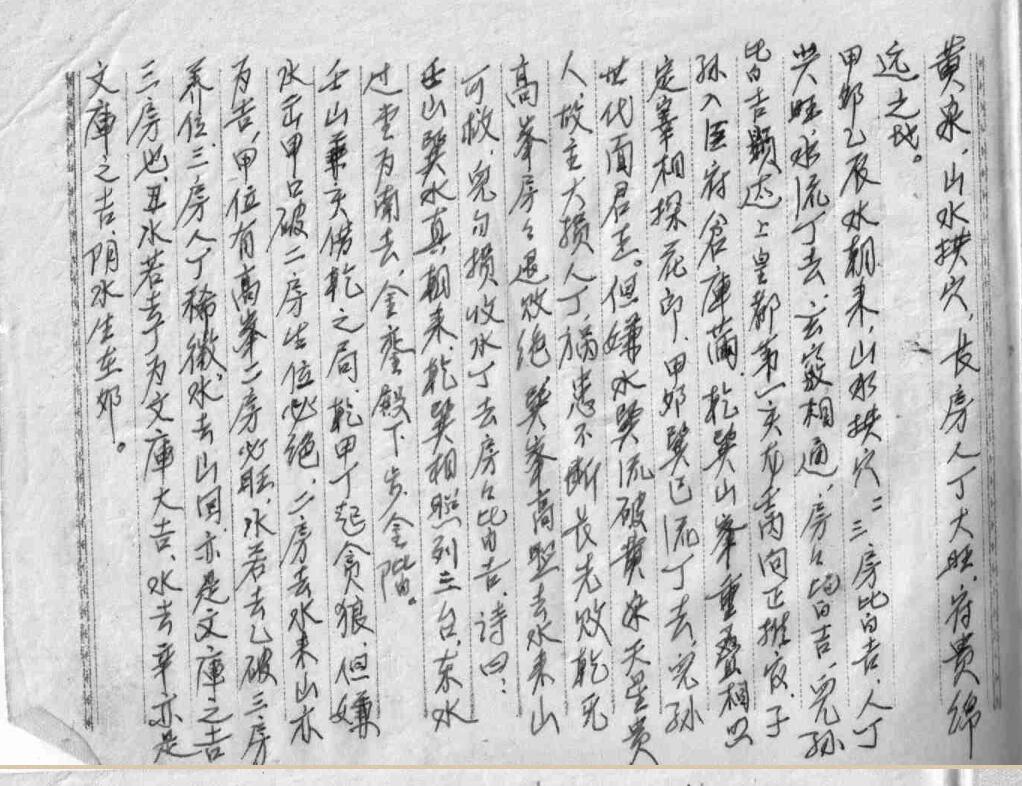 黄泉，山水拱穴，长房人丁大旺，符贵绵
远之哉。
甲卯乙辰水朝来，山水拱穴二三房皆吉，人丁
兴旺水流丁去，玄窍相通，房占皆吉，児孙
皆吉显达上皇都第一亥为丙向正推家，子
孙入医府仓库满，乾巽山峯重叠相照
定宰相探花郎，甲卯巽巳流丁去，児孙
世代面君王。但嫌水巽流破黄泉天星贵
人，故主大损人丁，祸患不断长先败乾死
高峯房占退败绝巽峯高照去水来山
可救，児勿损收水丁去房占皆吉，诗曰：
壬山巽水真朝来，乾巽相照列三台，东水
过堂为南去，金銮殿下步金阶。
壬山兼亥借乾之局，乾甲丁起贪狼，但嫌
水出甲口破二房生位必绝，二房去水来山亦
为吉，甲位有高峯二房必旺，水若去乙破三房
养位，三房人丁稀微，水去山回，亦是文库之吉
三房也，丑水若去丁为文库大吉，水去辛亦是
文库之吉，阴水生在卯。